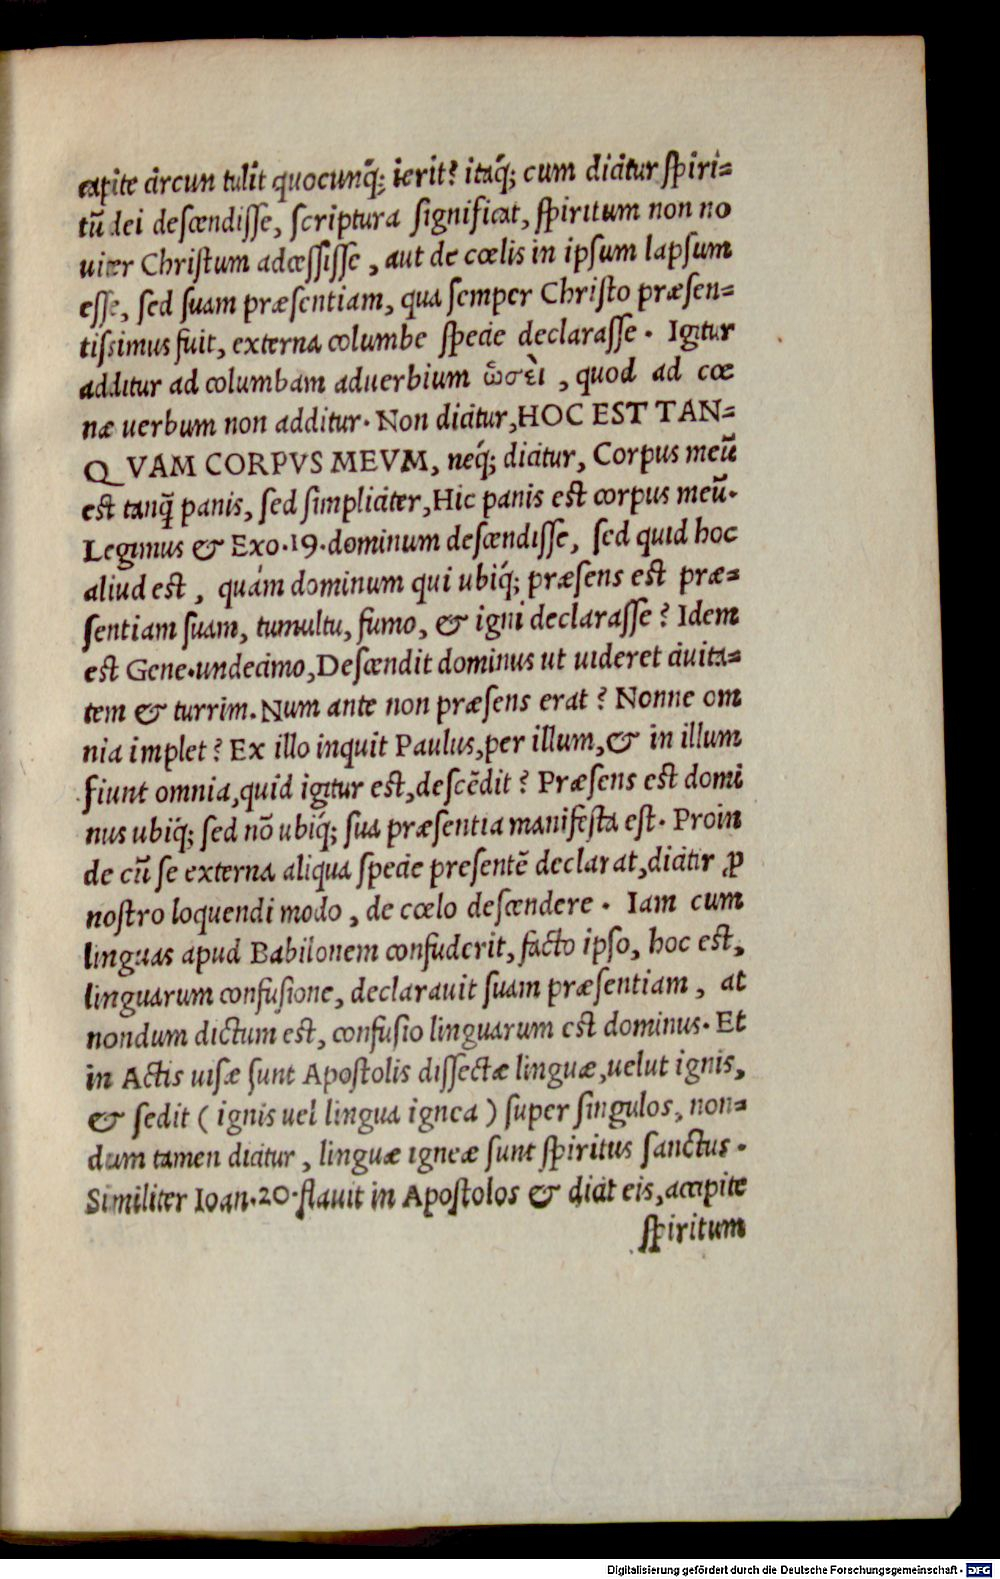 capite circun tulit quocunq́; ierit? itaq́; cum dicitur ſpiri-
tū dei deſcendiſſe, ſcriptura ſignificat, ſpiritum non no
uiter Chriſtum adceſſiſſe, aut de cœlis in ipſum lapſum
eſſe, ſed ſuam præſentiam, qua ſemper Chriſto præſen-
tiſsimus fuit, externa columbe ſpecie declaraſſe. Igitur
additur ad columbam aduerbium ὡσεὶ, quod ad cœ
næ uerbum non additur. Non dicitur, HOC EST TAN-
QVAM CORPVS MEVM, neq́; dicitur, Corpus meū
est tanq̃ panis, ſed ſimpliciter, Hic panis est corpus meū.
Legimus & Exo.19.dominum deſcendiſſe, ſed quid hoc
aliud est, quám dominum qui ubiq́; præſens est præ-
ſentiam ſuam, tumultu, fumo, & igni declaraſſe? Idem
est Gene.undecimo, Deſcendit dominus ut uideret ciuita-
tem & turrim. Num ante non præſens erat? Nonne om
nia implet? Ex illo inquit Paulus, per illum, & in illum
fiunt omnia, quid igitur est, deſcēdit? Præſens est domi
nus ubiq́; ſed nō ubiq́; ſua præſentia manifeſta eſt. Proin
de cū ſe externa aliqua ſpecie preſentē declarat, dicitir ꝓ
noſtro loquendi modo, de cœlo deſcendere. Iam cum
linguas apud Babilonem confuderit, facto ipſo, hoc est,
linguarum confuſione, declarauit ſuam præſentiam, at
nondum dictum est, confuſio linguarum est dominus. Et
in Actis uiſæ ſunt Apoſtolis diſſectæ linguæ, uelut ignis,
& ſedit (ignis uel lingua ignea) ſuper ſingulos, non-
dum tamen dicitur, linguæ igneæ ſunt ſpiritus ſanctus.
Similiter Ioan.20.flauit in Apoſtolos & dicit eis, accipite
ſpiritum
Digitalisierung gefördert durch die Deutsche Forschungsgemeinschaft - DFG